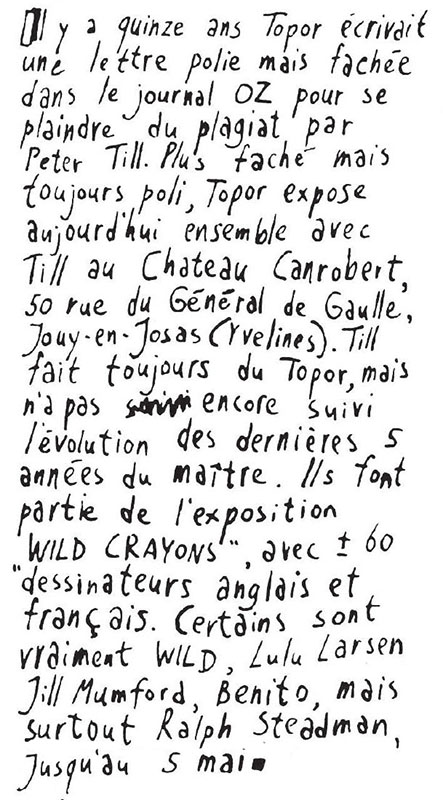 Il y a quinze ans Topor écrivait
une lettre polie mais fachée
dans le journal OZ pour se
plaindre du plagiat par
Peter Till. Plus faché mais
toujours poli, Topor expose
aujourd'hui ensemble avec
Till au Chateau Canrobert,
50 rue du Général de Gaulle,
Jouy-en-Josas (Yvelines). Till
fait toujours du Topor, mais
n'a pas encore suivi
l'évolution des dernières 5
années du maître. Ils font
partie de l'exposition
"WILD CRAYONS", avec ± 60
"dessinateurs anglais et
français. Certains sont
vraiment WILD, Lulu Larsen
Jill Mumford, Benito, mais
surtout Ralph Steadman,
Jusqu'au 5 mai.